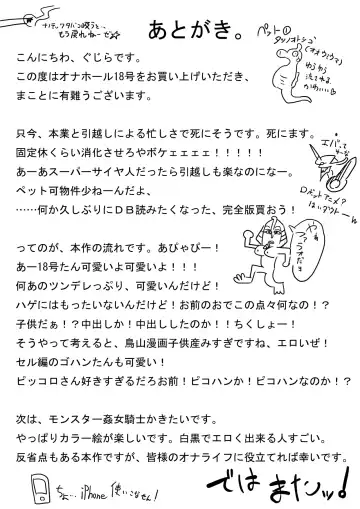 あとがき。
ペットの
タツノオトシゴ
こんにちわ、ぐじらです。
この度はオナホール18号をお買い上げいただき、
まことに有難うございます。
只今、本業と引越しによる忙しさで死にそうです。死にます。
固定休くらい消化させろやボケェェェェ！！！！！
あーあスーパーサイヤ人だったら引越しも楽なのになー。
ペット可物件少ねーんだよ、
……何か久しぶりにＤＢ読みたくなった、完全版買おう！
ってのが、本作の流れです。あぴゃぴー！
あー18号たん可愛いよ可愛いよ！！！
何あのツンデレっぷり、可愛いんだけど！
ハゲにはもったいないんだけど！お前のおでこの点々何なの！？
子供だぁ！？中出しか！中出ししたのか！！ちくしょー！
そうやって考えると、鳥山漫画子供産みすぎですね、エロいぜ！
セル編のゴハンたんも可愛い！
ピッコロさん好きすぎるだろお前！ピコハンか！ピコハンなのか！？
次は、モンスター姦女騎士かきたいです。
やっぱりカラー絵が楽しいです。白黒でエロく出来る人すごい。
反省点もある本作ですが、皆様のオナライフに役立てれば幸いです。
ではまたッ！
ちょ…iPhone使いこなせん！